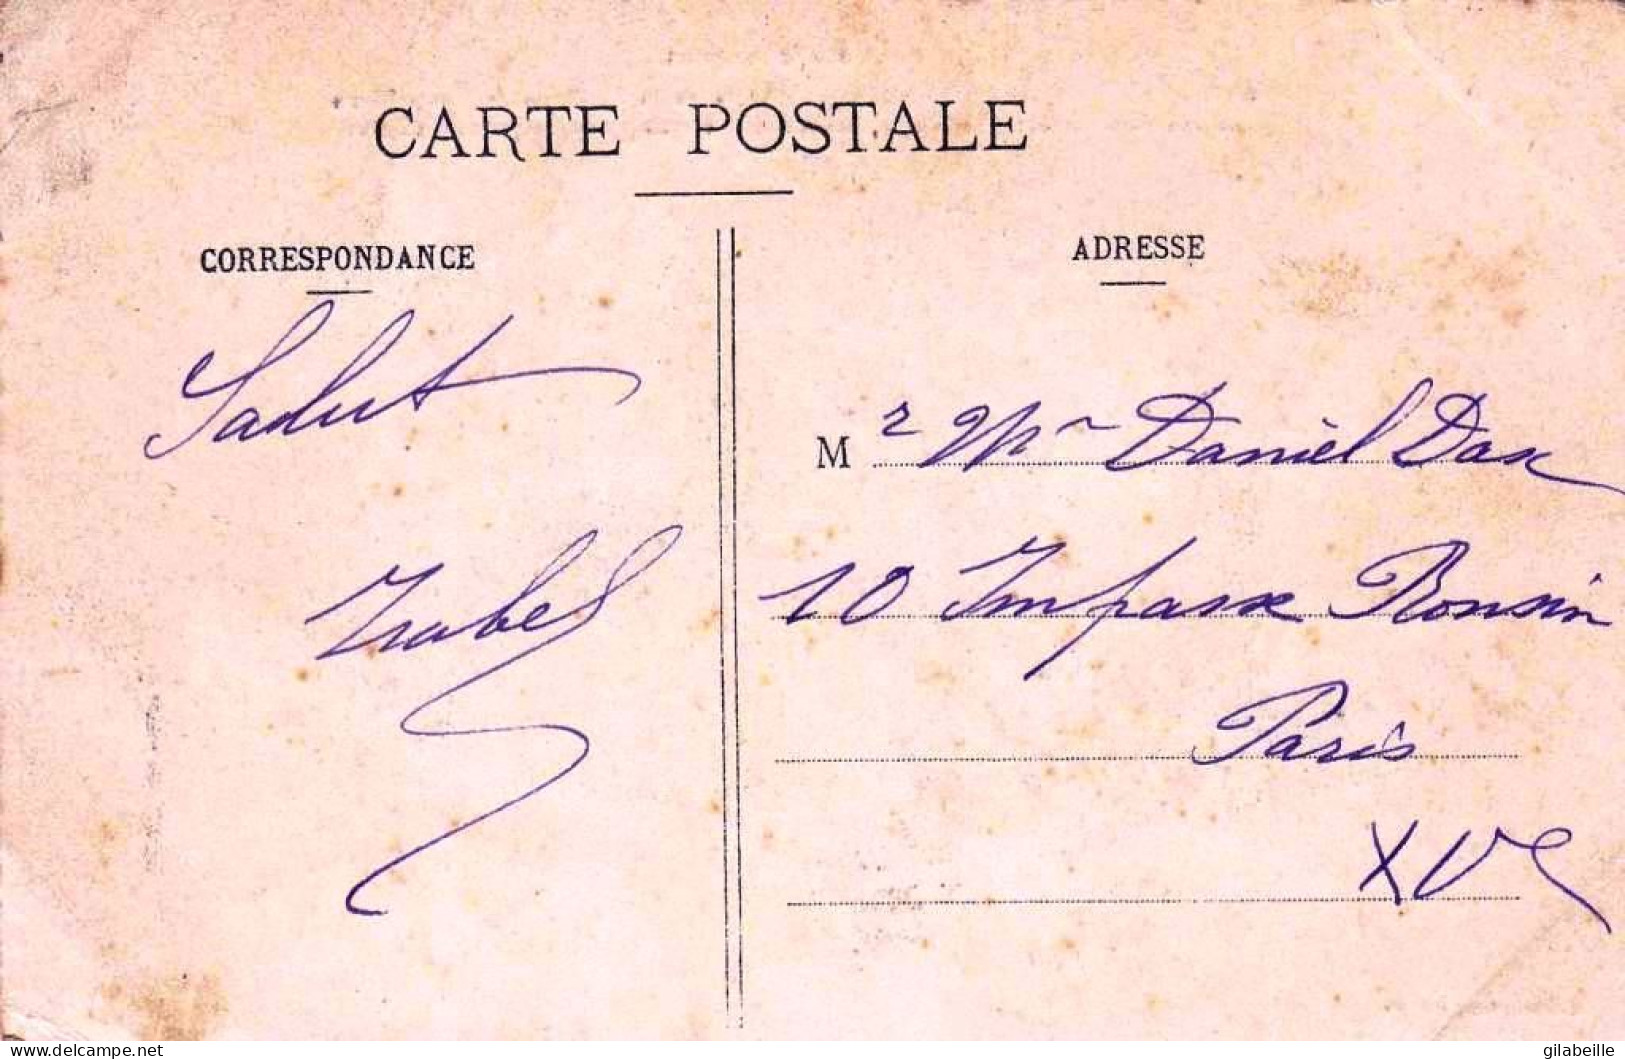 CARTE POSTALE
CORRESPONDANCE
ADRESSE
Salut
Isabel
M r Mr Daniel Dax
10 Impasse Ronsin
Paris
XVe
www.delcampe.net
gilabeille